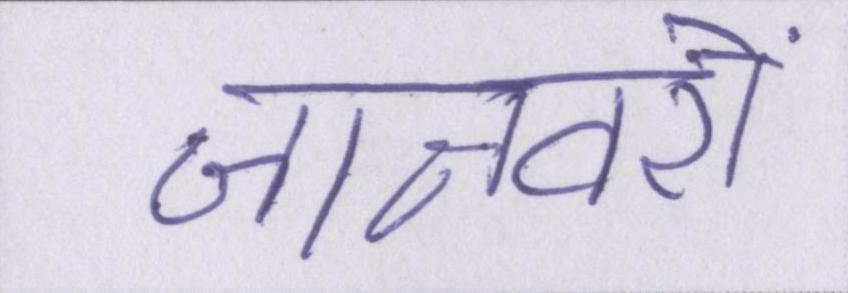 जानवरों